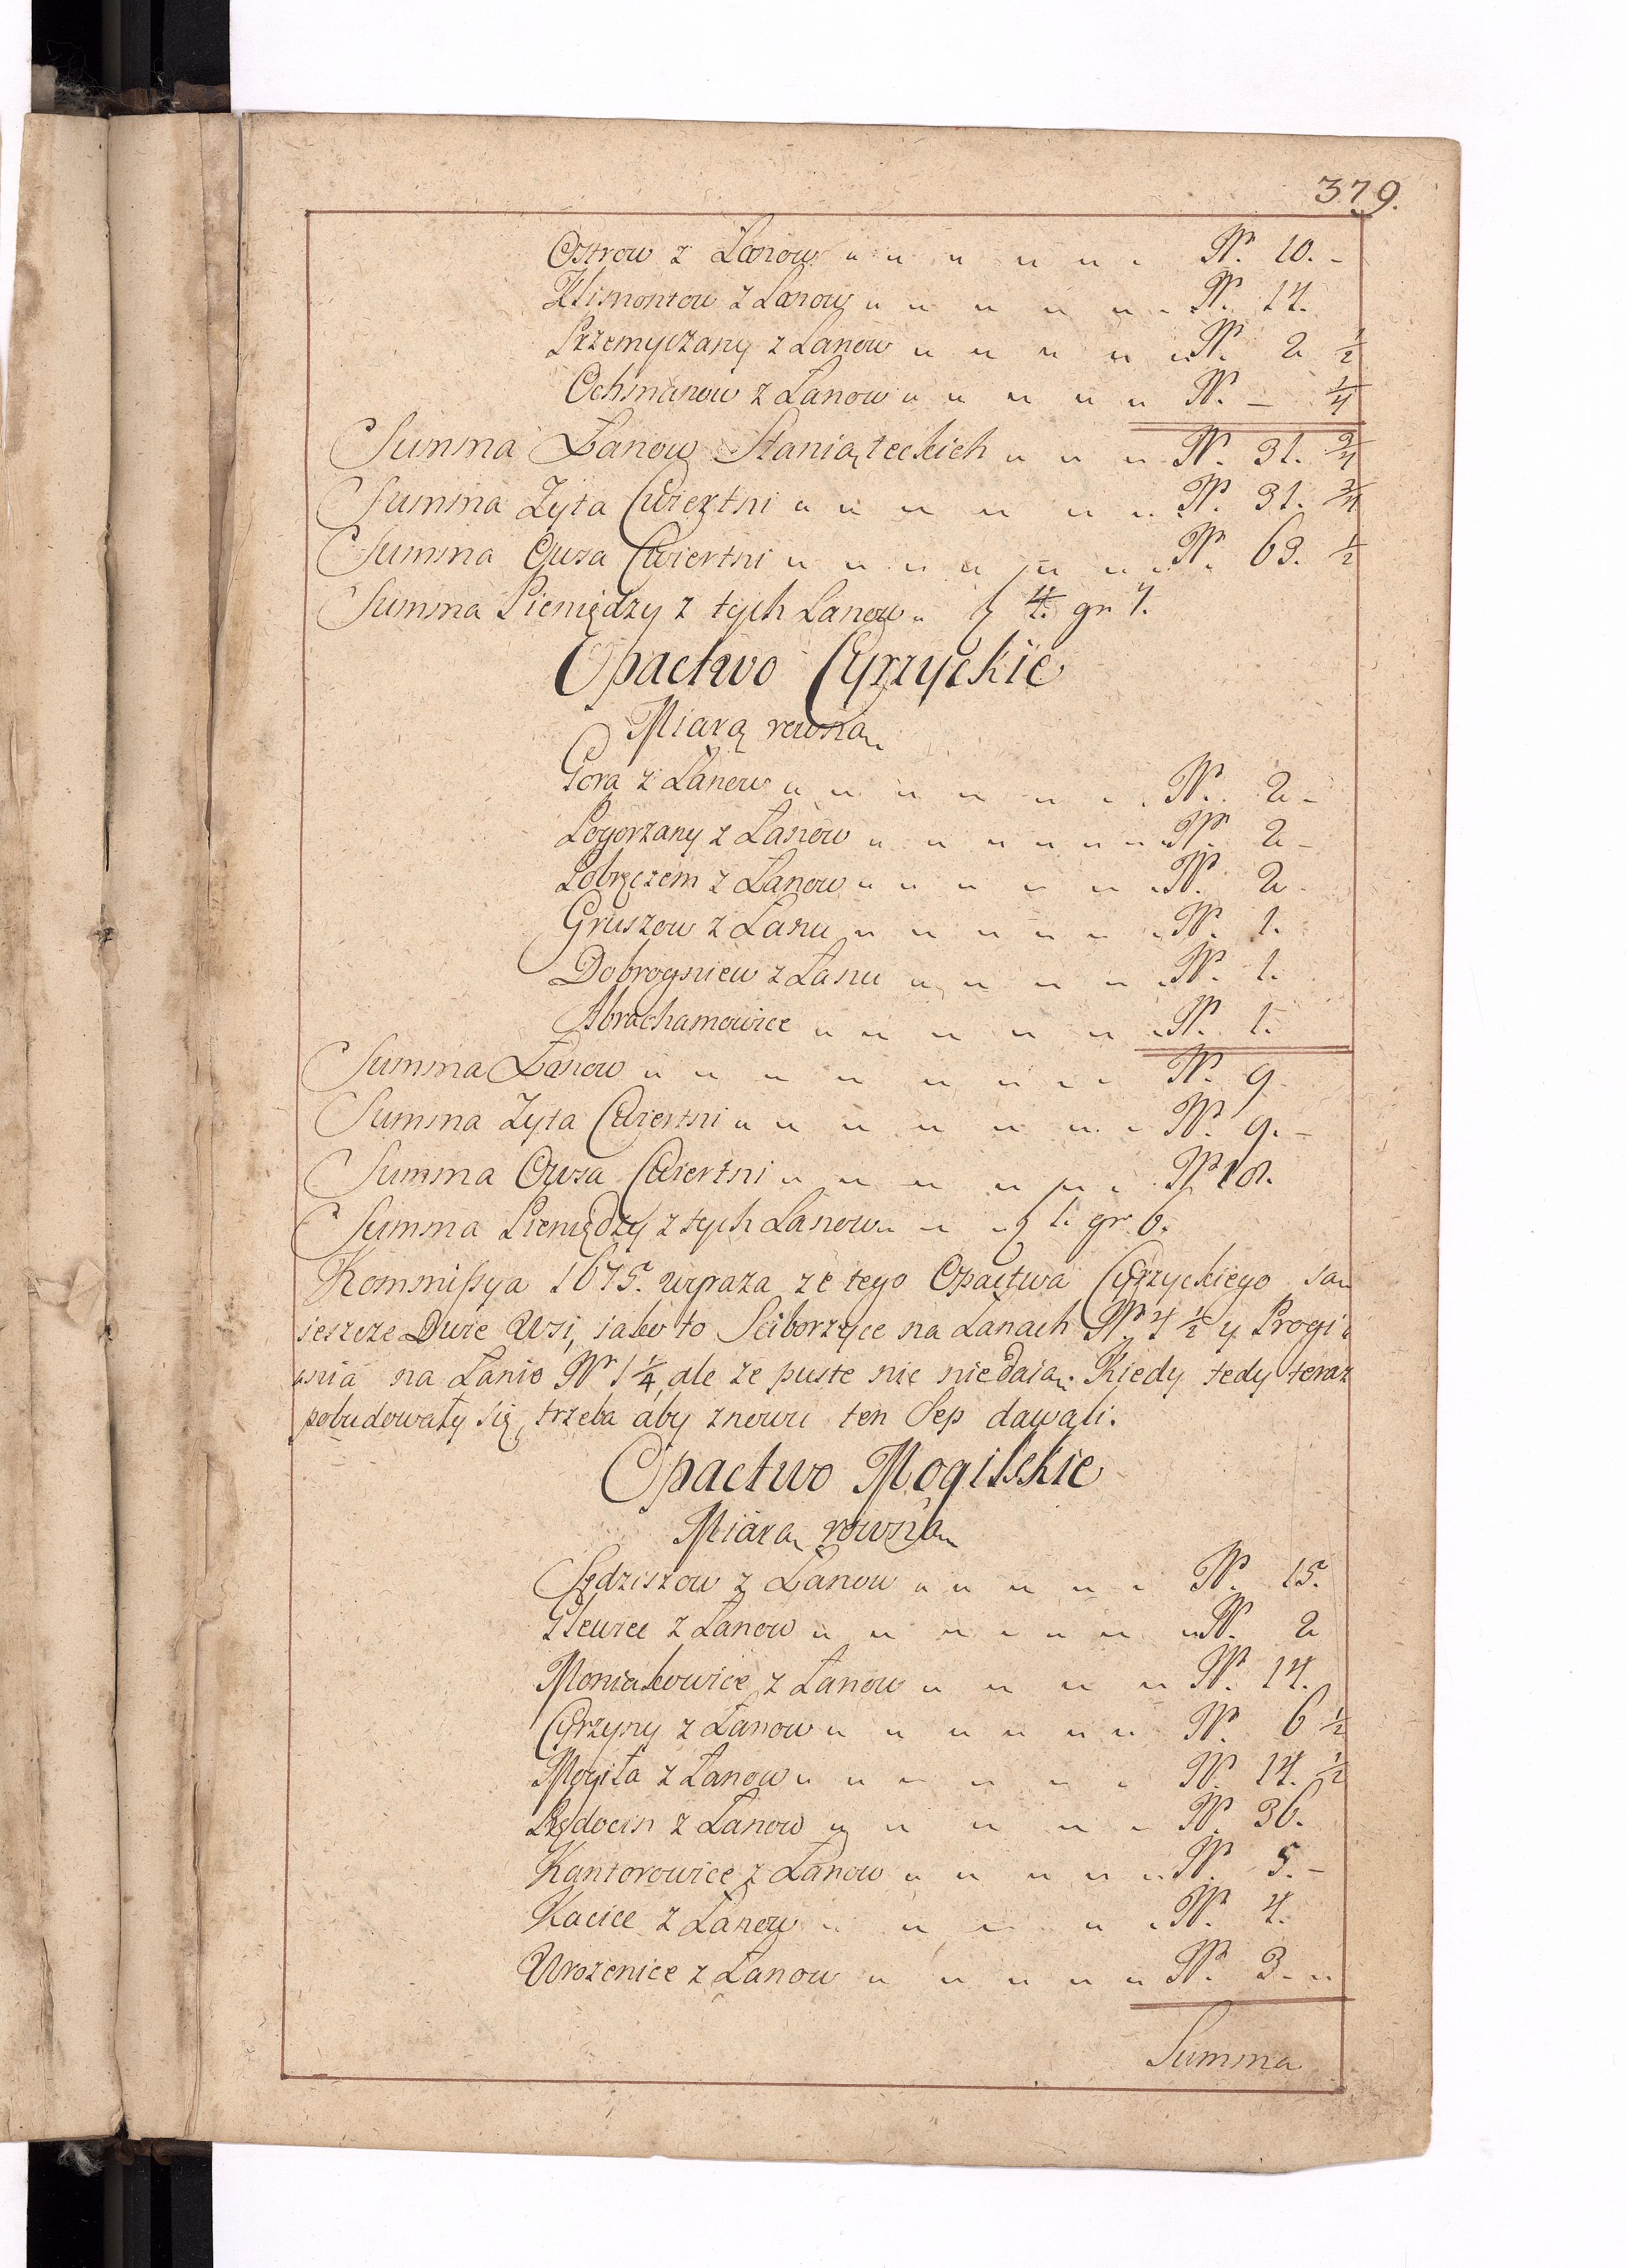 379.
Ostrow z Łanow „ „ „ „ „ „ Nr. 10. -
Klimontow z Łanow „ „ „ „ „ „ Nr. 14.
Przemyczany z Łanow „ „ „ „ „ Nr. 2 ½
Ochmanow z Łanow „ „ „ „ „ Nr. - ¼
Summa Łanow Staniąteckich „ „ „ Nr. 31. ¾
Summa Zyta Cwiertni „ „ „ „ „ „ Nr. 31. ¾
Summa Owsa Cwiertni „ „ „ „ „ „ „ Nr. 63. ½
Summa Pieniędzy z tych Łanow „ 4. gr 7.
Opactwo Cyrzyckie
Miarą rowną
Gora z Łanow „ „ „ „ „ „ „ Nr. 2 -
Pogorzany z Łanow „ „ „ „ „ „ Nr. 2 -
Pobręczem z Łanow „ „ „ „ „ „ Nr. 2 -
Gruszow z Łanu „ „ „ „ „ „ Nr. 1.
Dobrogniew z Łanu „ „ „ „ „ Nr. 1.
Abrachamowice „ „ „ „ „ „ Nr. 1.
Summa Łanow „ „ „ „ „ „ „ „ Nr. 9
Summa Zyta Cwiertni „ „ „ „ „ „ „ Nr. 9. -
Summa Owsa Cwiertni „ „ „ „ „ „ Nr 18.
Summa Pieniędzy z tych Łanow „ „ „ 1. gr. 6.
Kommissya 1675. wyraza ze tego Opactwa Cyrzyckiego są
ieszcze Dwie Wsi, iako to Sciborzyce na Łanach Nr. 4 ½ y Progi
nia na Łanie Nr 1 ¼, ale ze puste nic niedaią. Kiedy tedy teraz
pobudowały się, trzeba aby znowu ten Sep dawali.
Opactwo Mogilskie
Miarą rowną
Sędziszow z Łanow „ „ „ „ „ Nr. 15.
Glewice z Łanow „ „ „ „ „ „ „ Nr. 2
Moniakowice z Łanow „ „ „ „ Nr. 14.
Cyrzyny z Łanow „ „ „ „ „ „ Nr. 6 ½
Mogiła z Łanow „ „ „ „ „ „ Nr. 14. ½
Rędocin z Łanow „ „ „ „ „ Nr. 36.
Kantorowice z Łanow „ „ „ „ „ Nr. 5. -
Kacice z Łanow „ „ „ „ „ Nr. 4.
Wrozenice z Łanow „ „ „ „ „ Nr. 3. „
Summa